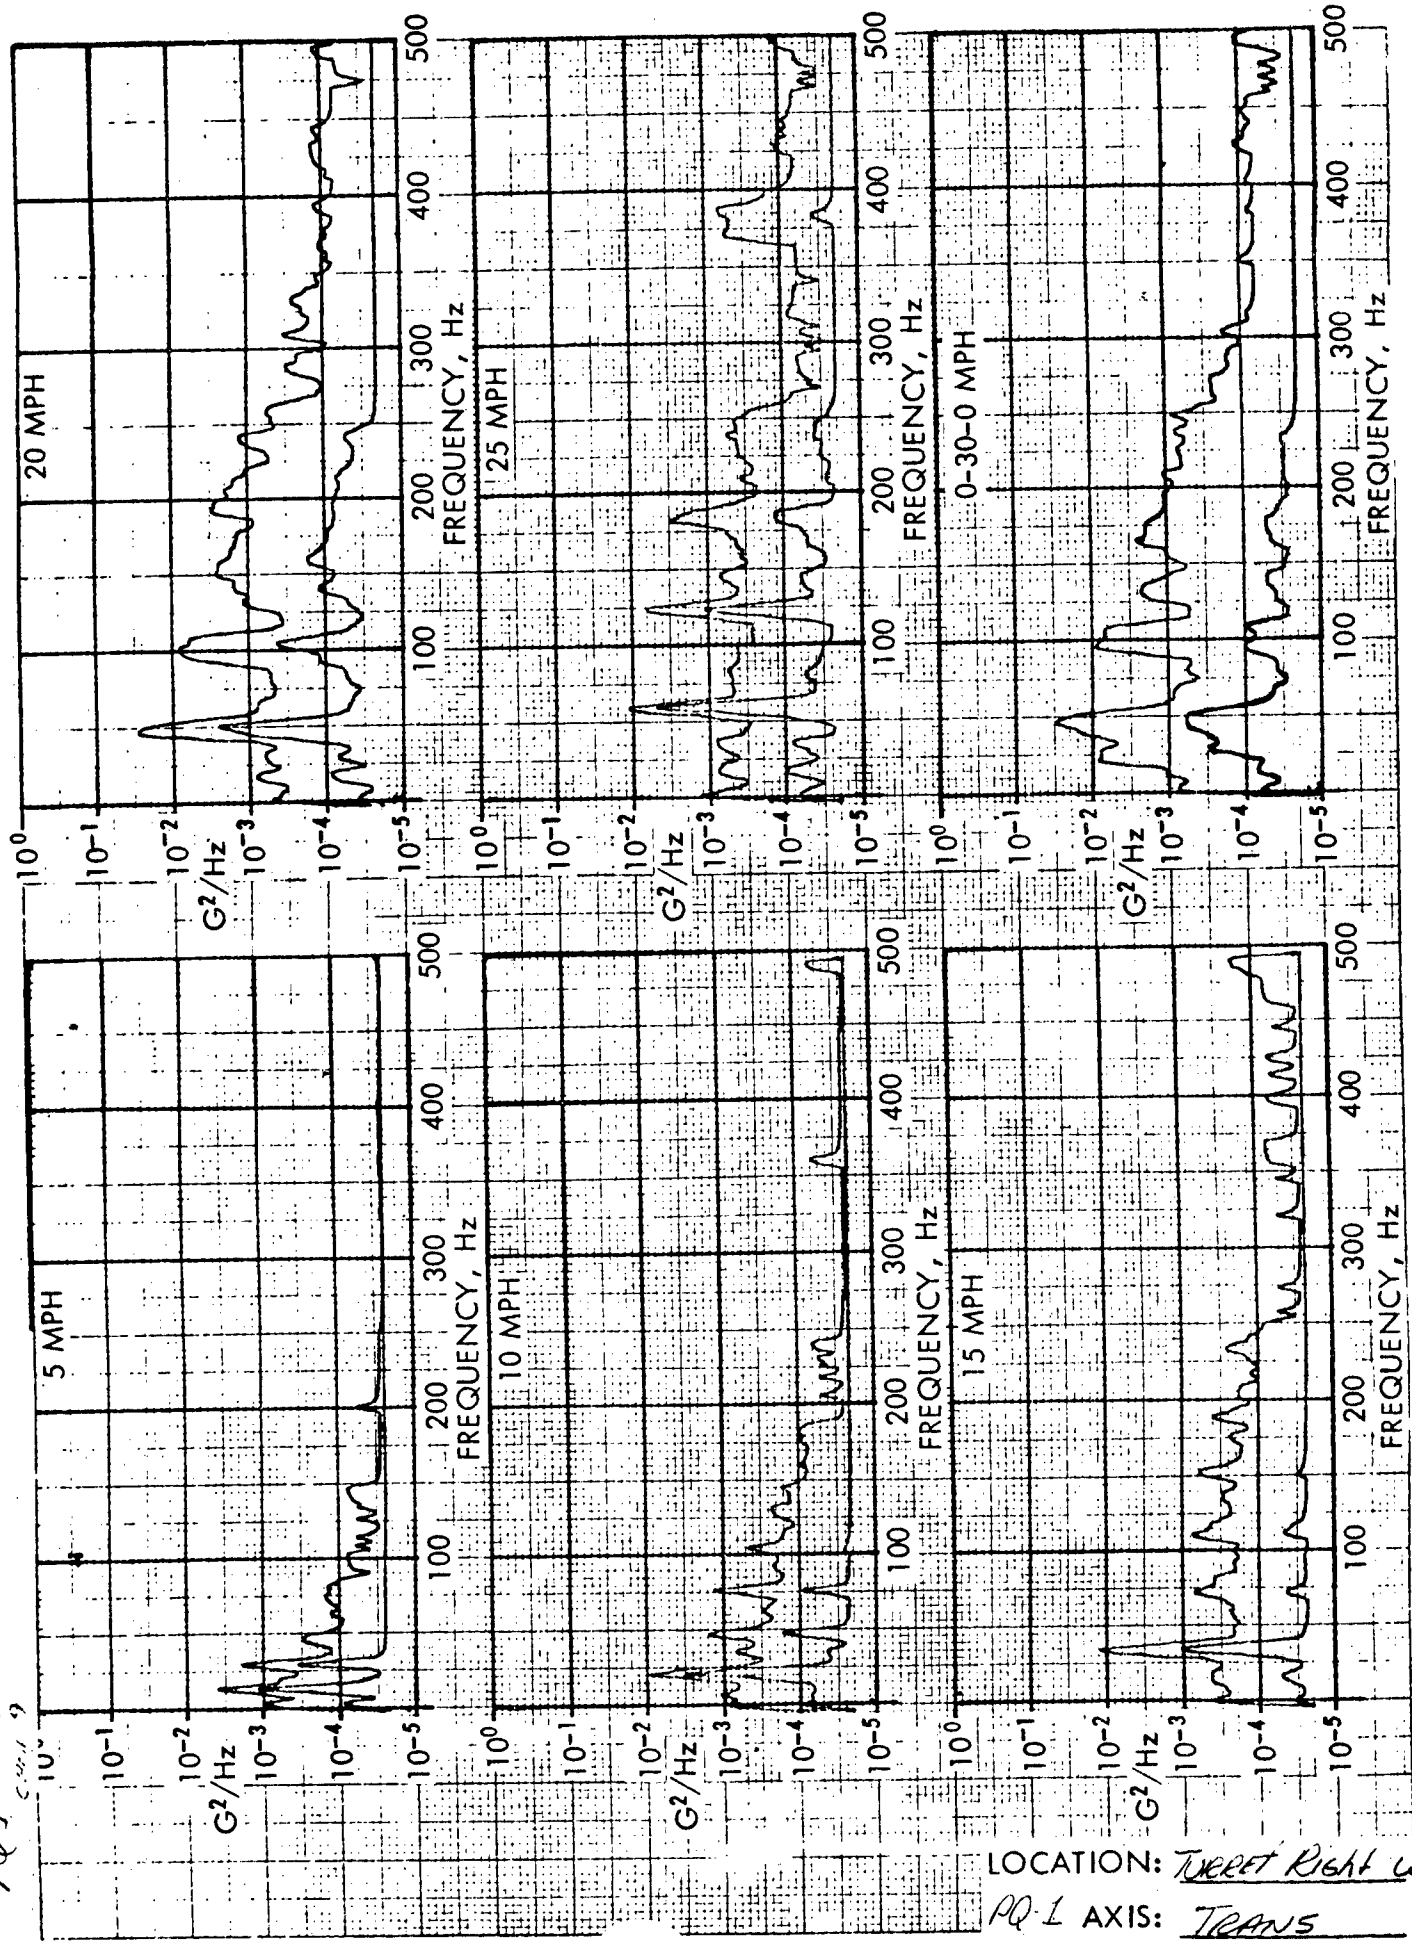 5 MPH
10⁻¹
10⁻²
G²/Hz
10⁻³
10⁻⁴
10⁻⁵
100 200 300 400 500
FREQUENCY, Hz
20 MPH
10⁰
10⁻¹
10⁻²
G²/Hz
10⁻³
10⁻⁴
10⁻⁵
100 200 300 400 500
FREQUENCY, Hz
10 MPH
10⁰
10⁻¹
10⁻²
G²/Hz
10⁻³
10⁻⁴
10⁻⁵
100 200 300 400 500
FREQUENCY, Hz
25 MPH
10⁰
10⁻¹
10⁻²
G²/Hz
10⁻³
10⁻⁴
10⁻⁵
100 200 300 400 500
FREQUENCY, Hz
15 MPH
10⁰
10⁻¹
10⁻²
G²/Hz
10⁻³
10⁻⁴
10⁻⁵
100 200 300 400 500
FREQUENCY, Hz
0-30-0 MPH
10⁰
10⁻¹
10⁻²
G²/Hz
10⁻³
10⁻⁴
10⁻⁵
100 200 300 400 500
FREQUENCY, Hz
LOCATION: TURRET Right
PQ-1 AXIS: TRANS